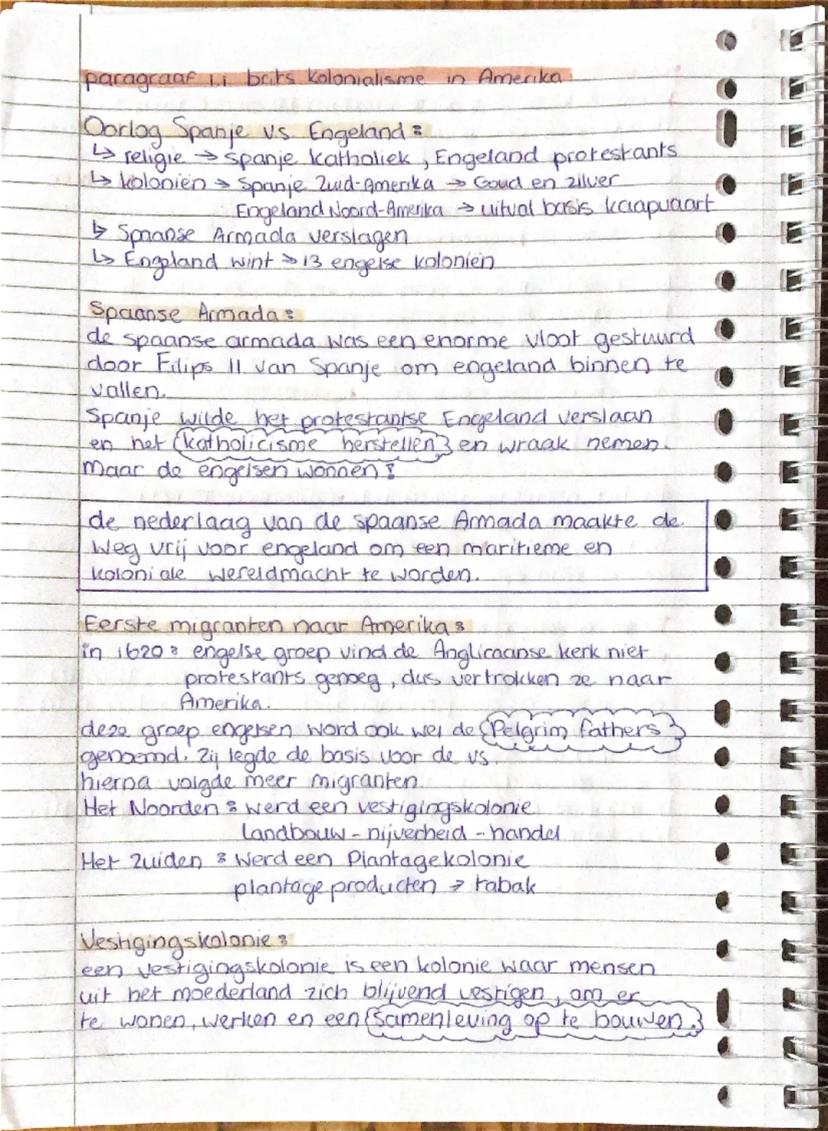 paragraaf 1.1 brits kolonialisme in Amerika
Oorlog Spanje vs Engeland:
↳ religie → Spanje katholiek, Engeland protestants
↳ koloniën → Spanje Zuid-Amerika → Goud en zilver
Engeland Noord-Amerika → uitval basis kaapvaart
↳ Spaanse Armada verslagen
↳ Engeland wint → 13 engelse koloniën
Spaanse Armada:
de spaanse armada was een enorme vloot gestuurd
door Filips II van Spanje om engeland binnen te
vallen.
Spanje wilde het protestantse Engeland verslaan
en het katholicisme herstellen en wraak nemen.
maar de engelsen wonnen!
de nederlaag van de spaanse Armada maakte de
weg vrij voor engeland om een maritieme en
koloniale wereldmacht te worden.
Eerste migranten naar Amerika:
in 1620: engelse groep vind de Anglicaanse kerk niet
protestants genoeg, dus vertrokken ze naar
Amerika.
deze groep engelsen word ook wel de Pelgrim fathers
genoemd. Zij legde de basis voor de vs.
hierna volgde meer migranten.
Het Noorden: werd een vestigingskolonie
Landbouw - nijverheid - handel
Het Zuiden: werd een Plantagekolonie
plantage producten → tabak
Vestigingskolonie:
een vestigingskolonie is een kolonie waar mensen
uit het moederland zich blijvend vestigen, om er
te wonen, werken en een samenleving op te bouwen.